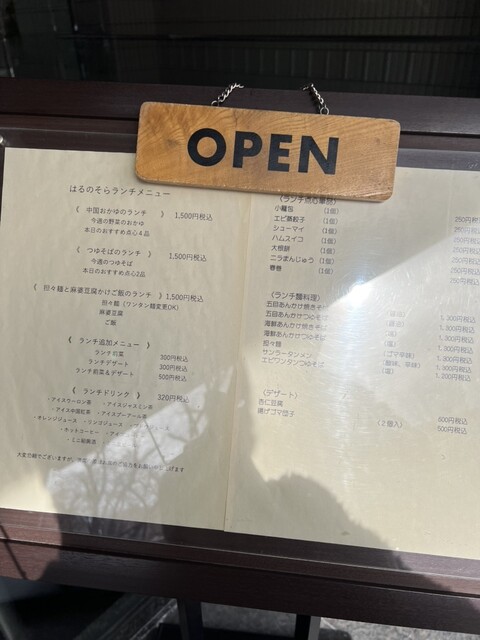 OPEN
はるのそらランチメニュー
《 中国おかゆのランチ 》 1,500円税込
今週の野菜のおかゆ
本日のおすすめ点心4品
《 つゆそばのランチ 》 1,500円税込
今週のつゆそば
本日のおすすめ点心2品
《 担々麺と麻婆豆腐かけご飯のランチ 》1,500円税込
担々麺 (ワンタン麺変更OK)
麻婆豆腐
ご飯
《 ランチ追加メニュー 》
ランチ前菜 300円税込
ランチデザート 300円税込
ランチ前菜&デザート 500円税込
《 ランチドリンク 》 320円税込
・アイスウーロン茶 ・アイスジャスミン茶
・アイス中国紅茶 ・アイスプーアール茶
・オレンジジュース ・リンゴジュース
・ホットコーヒー
・ミニ紹興酒
大変恐縮でございますが、
お願い致しております
《ランチ点心単品》
小籠包 (1個) 250円税
エビ蒸餃子 (1個) 250円税
シューマイ (1個) 250円税
ハムスイコ (1個) 250円税
大根餅 (1個) 250円税
ニラまんじゅう (1個) 250円税
春巻 (1個)
《ランチ麺料理》
五目あんかけ焼きそば 1,300円税込
五目あんかけつゆそば 1,300円税込
海鮮あんかけ焼きそば 1,300円税込
海鮮あんかけつゆそば 1,300円税込
担々麺 (ゴマ辛味) 1,300円税込
サンラータンメン (酸味、辛味) 1,300円税込
エビワンタンつゆそば (塩) 1,200円税込
《デザート》
杏仁豆腐 500円税込
揚げゴマ団子 (2個入) 500円税込